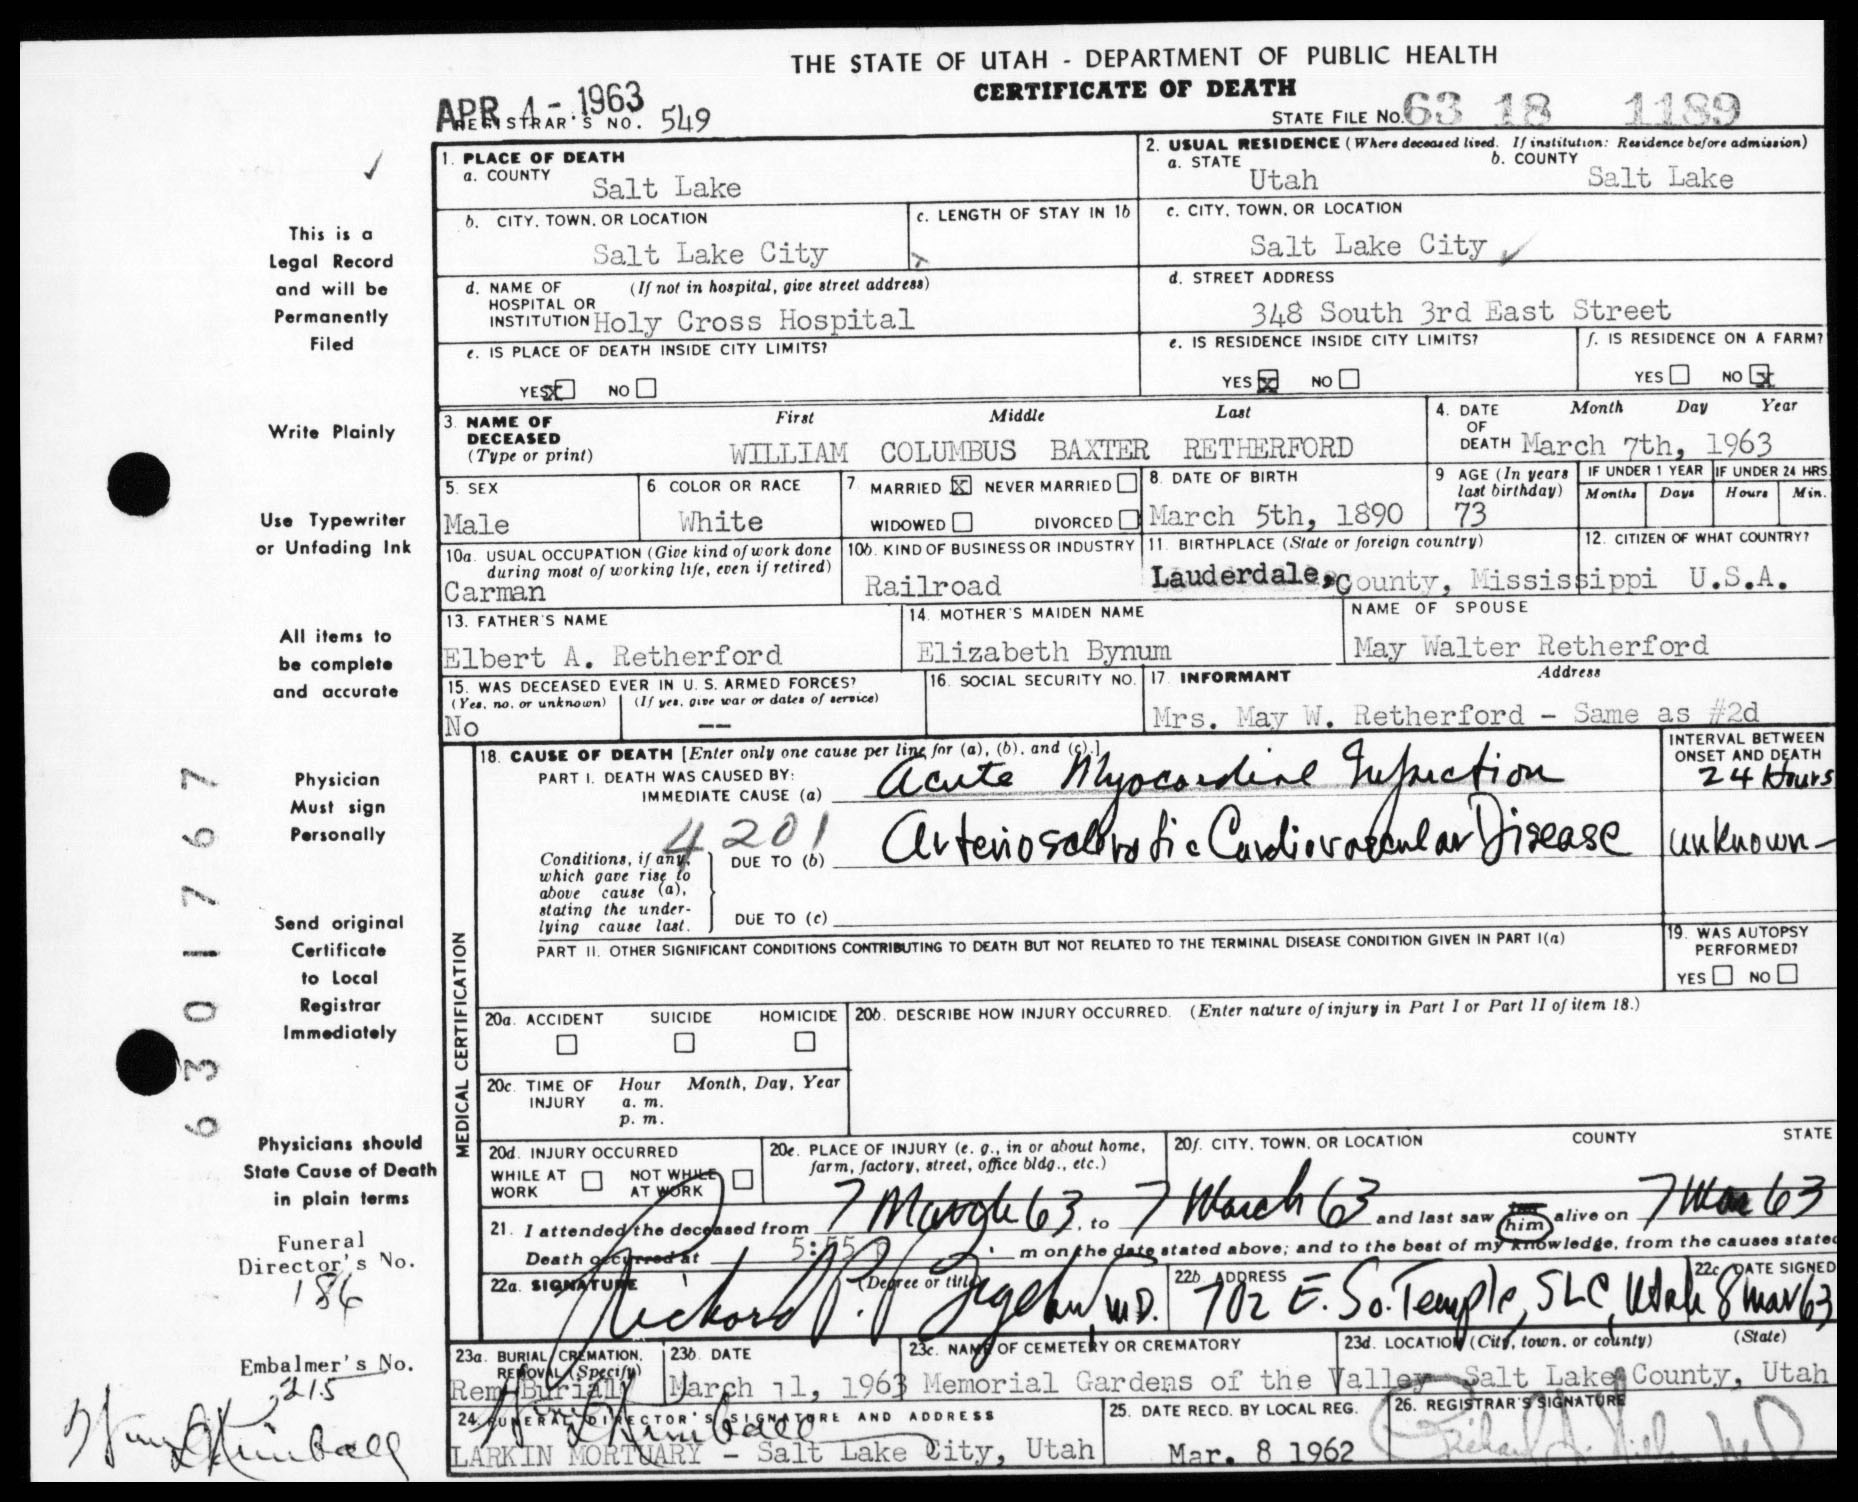 THE STATE OF UTAH - DEPARTMENT OF PUBLIC HEALTH
CERTIFICATE OF DEATH
APR 4 - 1963
REGISTRAR'S NO. 549
STATE FILE NO. 63 18 1189
1. PLACE OF DEATH
a. COUNTY
Salt Lake
2. USUAL RESIDENCE (Where deceased lived. If institution: Residence before admission)
a. STATE
Utah
b. COUNTY
Salt Lake
b. CITY, TOWN, OR LOCATION
Salt Lake City
c. LENGTH OF STAY IN 1b
c. CITY, TOWN, OR LOCATION
Salt Lake City
d. NAME OF (If not in hospital, give street address)
HOSPITAL OR
INSTITUTION Holy Cross Hospital
d. STREET ADDRESS
348 South 3rd East Street
e. IS PLACE OF DEATH INSIDE CITY LIMITS?
YES X NO
e. IS RESIDENCE INSIDE CITY LIMITS?
YES X NO
f. IS RESIDENCE ON A FARM?
YES NO X
3. NAME OF
DECEASED
(Type or print)
First Middle Last
WILLIAM COLUMBUS BAXTER RETHERFORD
4. DATE
OF
DEATH
Month Day Year
March 7th, 1963
5. SEX
Male
6. COLOR OR RACE
White
7. MARRIED X NEVER MARRIED
WIDOWED DIVORCED
8. DATE OF BIRTH
March 5th, 1890
9 AGE (In years
last birthday)
73
IF UNDER 1 YEAR
Months Days
IF UNDER 24 HRS.
Hours Min.
10a. USUAL OCCUPATION (Give kind of work done
during most of working life, even if retired)
Carman
10b. KIND OF BUSINESS OR INDUSTRY
Railroad
11. BIRTHPLACE (State or foreign country)
Lauderdale, County, Mississippi
12. CITIZEN OF WHAT COUNTRY?
U.S.A.
13. FATHER'S NAME
Elbert A. Retherford
14. MOTHER'S MAIDEN NAME
Elizabeth Bynum
NAME OF SPOUSE
May Walter Retherford
15. WAS DECEASED EVER IN U. S. ARMED FORCES?
(Yes, no, or unknown) (If yes, give war or dates of service)
No --
16. SOCIAL SECURITY NO.
17. INFORMANT Address
Mrs. May W. Retherford - Same as #2d
18. CAUSE OF DEATH [Enter only one cause per line for (a), (b), and (c).]
PART I. DEATH WAS CAUSED BY:
IMMEDIATE CAUSE (a) Acute Myocardial Infarction
INTERVAL BETWEEN
ONSET AND DEATH
24 Hours
4201
Conditions, if any,
which gave rise to
above cause (a),
stating the under-
lying cause last.
DUE TO (b) Arteriosclerotic Cardiovascular Disease
unknown
DUE TO (c)
PART II. OTHER SIGNIFICANT CONDITIONS CONTRIBUTING TO DEATH BUT NOT RELATED TO THE TERMINAL DISEASE CONDITION GIVEN IN PART I(a)
19. WAS AUTOPSY
PERFORMED?
YES NO
MEDICAL CERTIFICATION
20a. ACCIDENT SUICIDE HOMICIDE
20b. DESCRIBE HOW INJURY OCCURRED. (Enter nature of injury in Part I or Part II of item 18.)
20c. TIME OF INJURY
Hour Month, Day, Year
a. m.
p. m.
20d. INJURY OCCURRED
WHILE AT
WORK
NOT WHILE
AT WORK
20e. PLACE OF INJURY (e. g., in or about home,
farm, factory, street, office bldg., etc.)
20f. CITY, TOWN, OR LOCATION COUNTY STATE
21. I attended the deceased from 7 March 63, to 7 March 63 and last saw him alive on 7 Mar 63
Death occurred at 5:55 p m on the date stated above; and to the best of my knowledge, from the causes stated
22a. SIGNATURE (Degree or title)
Richard P. M.D.
22b. ADDRESS
702 E. So. Temple, SLC, Utah
22c. DATE SIGNED
8 Mar 63
23a. BURIAL, CREMATION,
REMOVAL (Specify)
Rem Burial
23b. DATE
March 11, 1963
23c. NAME OF CEMETERY OR CREMATORY
Memorial Gardens of the Valley
23d. LOCATION (City, town, or county) (State)
Salt Lake County, Utah
24. FUNERAL DIRECTOR'S SIGNATURE AND ADDRESS
Kimball
LARKIN MORTUARY - Salt Lake City, Utah
25. DATE RECD. BY LOCAL REG.
Mar. 8 1962
26. REGISTRAR'S SIGNATURE
This is a
Legal Record
and will be
Permanently
Filed
Write Plainly
Use Typewriter
or Unfading Ink
All items to
be complete
and accurate
Physician
Must sign
Personally
Send original
Certificate
to Local
Registrar
Immediately
Physicians should
State Cause of Death
in plain terms
6301767
Funeral
Director's No.
186
Embalmer's No.
215
Kimball